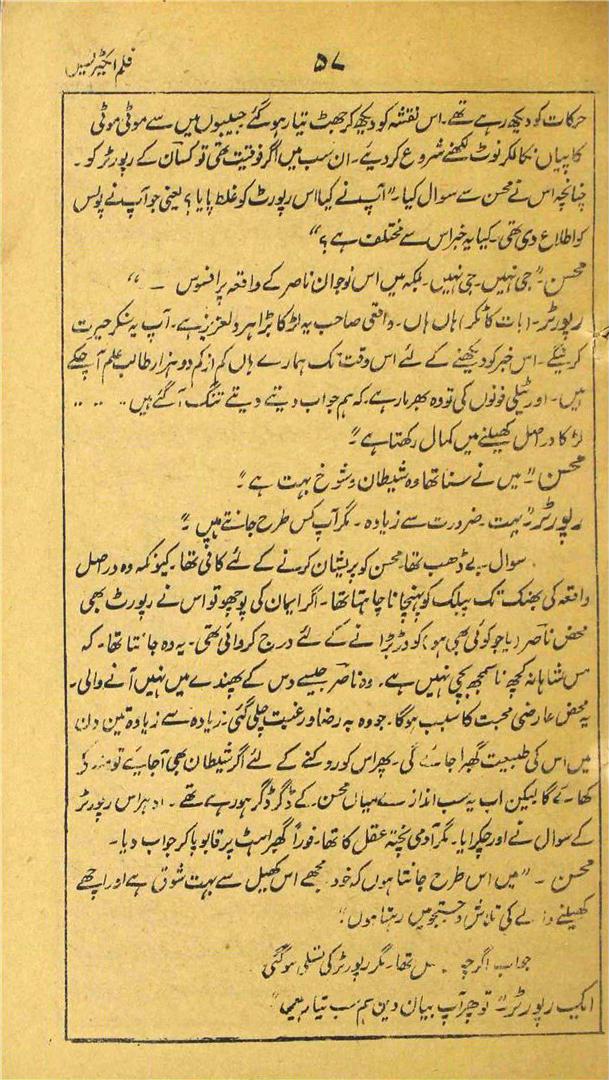 فلم ایکٹریسیں
۵۷
حرکات کو دیکھ رہے تھے۔ اس نقشہ کو دیکھ کر جھٹ تیار ہو گئے جیبوں میں سے موٹی موٹی
کاپیاں نکالکر نوٹ لکھنے شروع کر دیئے۔ ان سب میں اگر فوقیت تھی تو کسان کے رپورٹر کو۔
چنانچہ اس نے محسن سے سوال کیا۔ "آپ نے کیا اس رپورٹ کو غلط پایا؟ یعنی جو آپ نے پولس
کو اطلاع دی تھی۔ کیا یہ خبر اس سے مختلف ہے؟"
محسن۔ "جی نہیں۔ جی نہیں۔ بلکہ میں اس نوجوان ناصر کے واقعہ پر افسوس ۔ "
رپورٹر۔ (بات کاٹکر) ہاں ہاں۔ واقعی صاحب یہ لڑکا بڑا ہر دلعزیز ہے۔ آپ یہ سنکر حیرت
کرینگے۔ اس خبر کو دیکھنے کے لئے اس وقت تک ہمارے ہاں کم از کم دو ہزار طالب علم آ چکے
ہیں۔ اور ٹیلی فونوں کی تو وہ بھرمار ہے۔ کہ ہم جواب دیتے دیتے تنگ آ گئے ہیں ۔۔ ۔۔ ۔۔
لڑکا دراصل کھیلنے میں کمال رکھتا ہے"
محسن۔ "میں نے سنا تھا وہ شیطان و شوخ بہت ہے"
رپورٹر۔ "بہت۔ ضرورت سے زیادہ۔ مگر آپ کس طرح جانتے ہیں"
سوال بے ڈھب تھا۔ محسن کو پریشان کرنے کے لئے کافی تھا۔ کیونکہ وہ دراصل
واقعہ کی بھنک تک پبلک کو پہنچانا چاہتا تھا۔ اگر ایمان کی پوچھو تو اس نے رپورٹ بھی
محض ناصر (یا جو کوئی بھی ہو) کو دڑبڑانے کے لئے درج کروائی تھی۔ یہ وہ جانتا تھا۔ کہ
مس شاہانہ کچھ ناسمجھ بچی نہیں ہے۔ وہ ناصر جیسے دس کے پھندے میں نہیں آنے والی۔
یہ محض عارضی محبت کا سبب ہوگا۔ جو وہ بہ رضا و رغبت چلی گئی۔ زیادہ سے زیادہ تین دن
میں اس کی طبیعت گھبرا جائے گی۔ پھر اس کو روکنے کے لئے اگر شیطان بھی آ جائے تو
کھائے گا لیکن اب یہ سب انداز ے میاں محسن کے ڈگر ڈگر ہو رہے تھے۔ ادھر اس رپورٹر
کے سوال نے اور چکرایا۔ مگر آدمی پختہ عقل کا تھا۔ فوراً گھبراہٹ پر قابو پا کر جواب دیا۔
محسن ۔ "میں اس طرح جانتا ہوں کہ خود مجھے اس کھیل سے بہت شوق ہے اور اچھے
کھیلنے والے کی تلاش و جستجو میں رہتا ہوں"
جواب اگرچہ تھا۔ مگر رپورٹر کی تسلی ہو گئی
ایک رپورٹر۔ "تو پھر آپ بیان دیں ہم سب تیار ہیں"